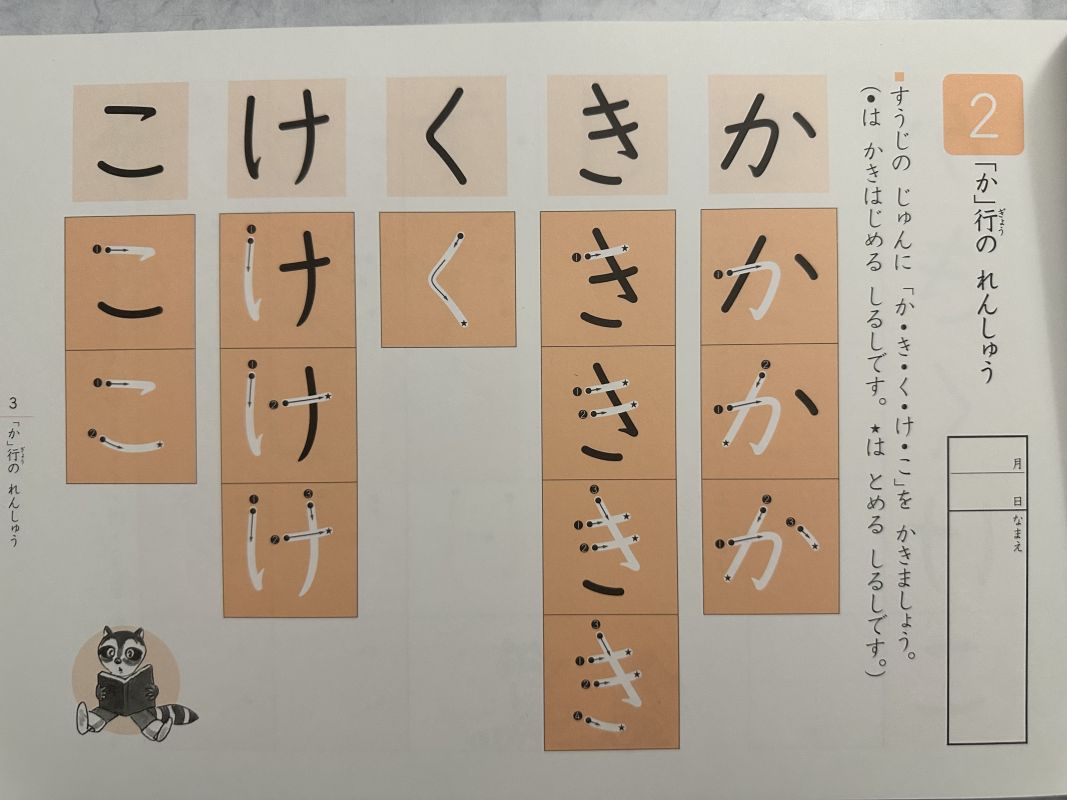 2
「か」行の れんしゅう
ぎょう
月
日
なまえ
■すうじの じゅんに 「か・き・く・け・こ」を かきましょう。
(●は かきはじめる しるしです。 ★は とめる しるしです。)
か
か
か
か
き
き
き
き
き
く
く
け
け
け
け
こ
こ
こ
3
「か」行の れんしゅう
ぎょう